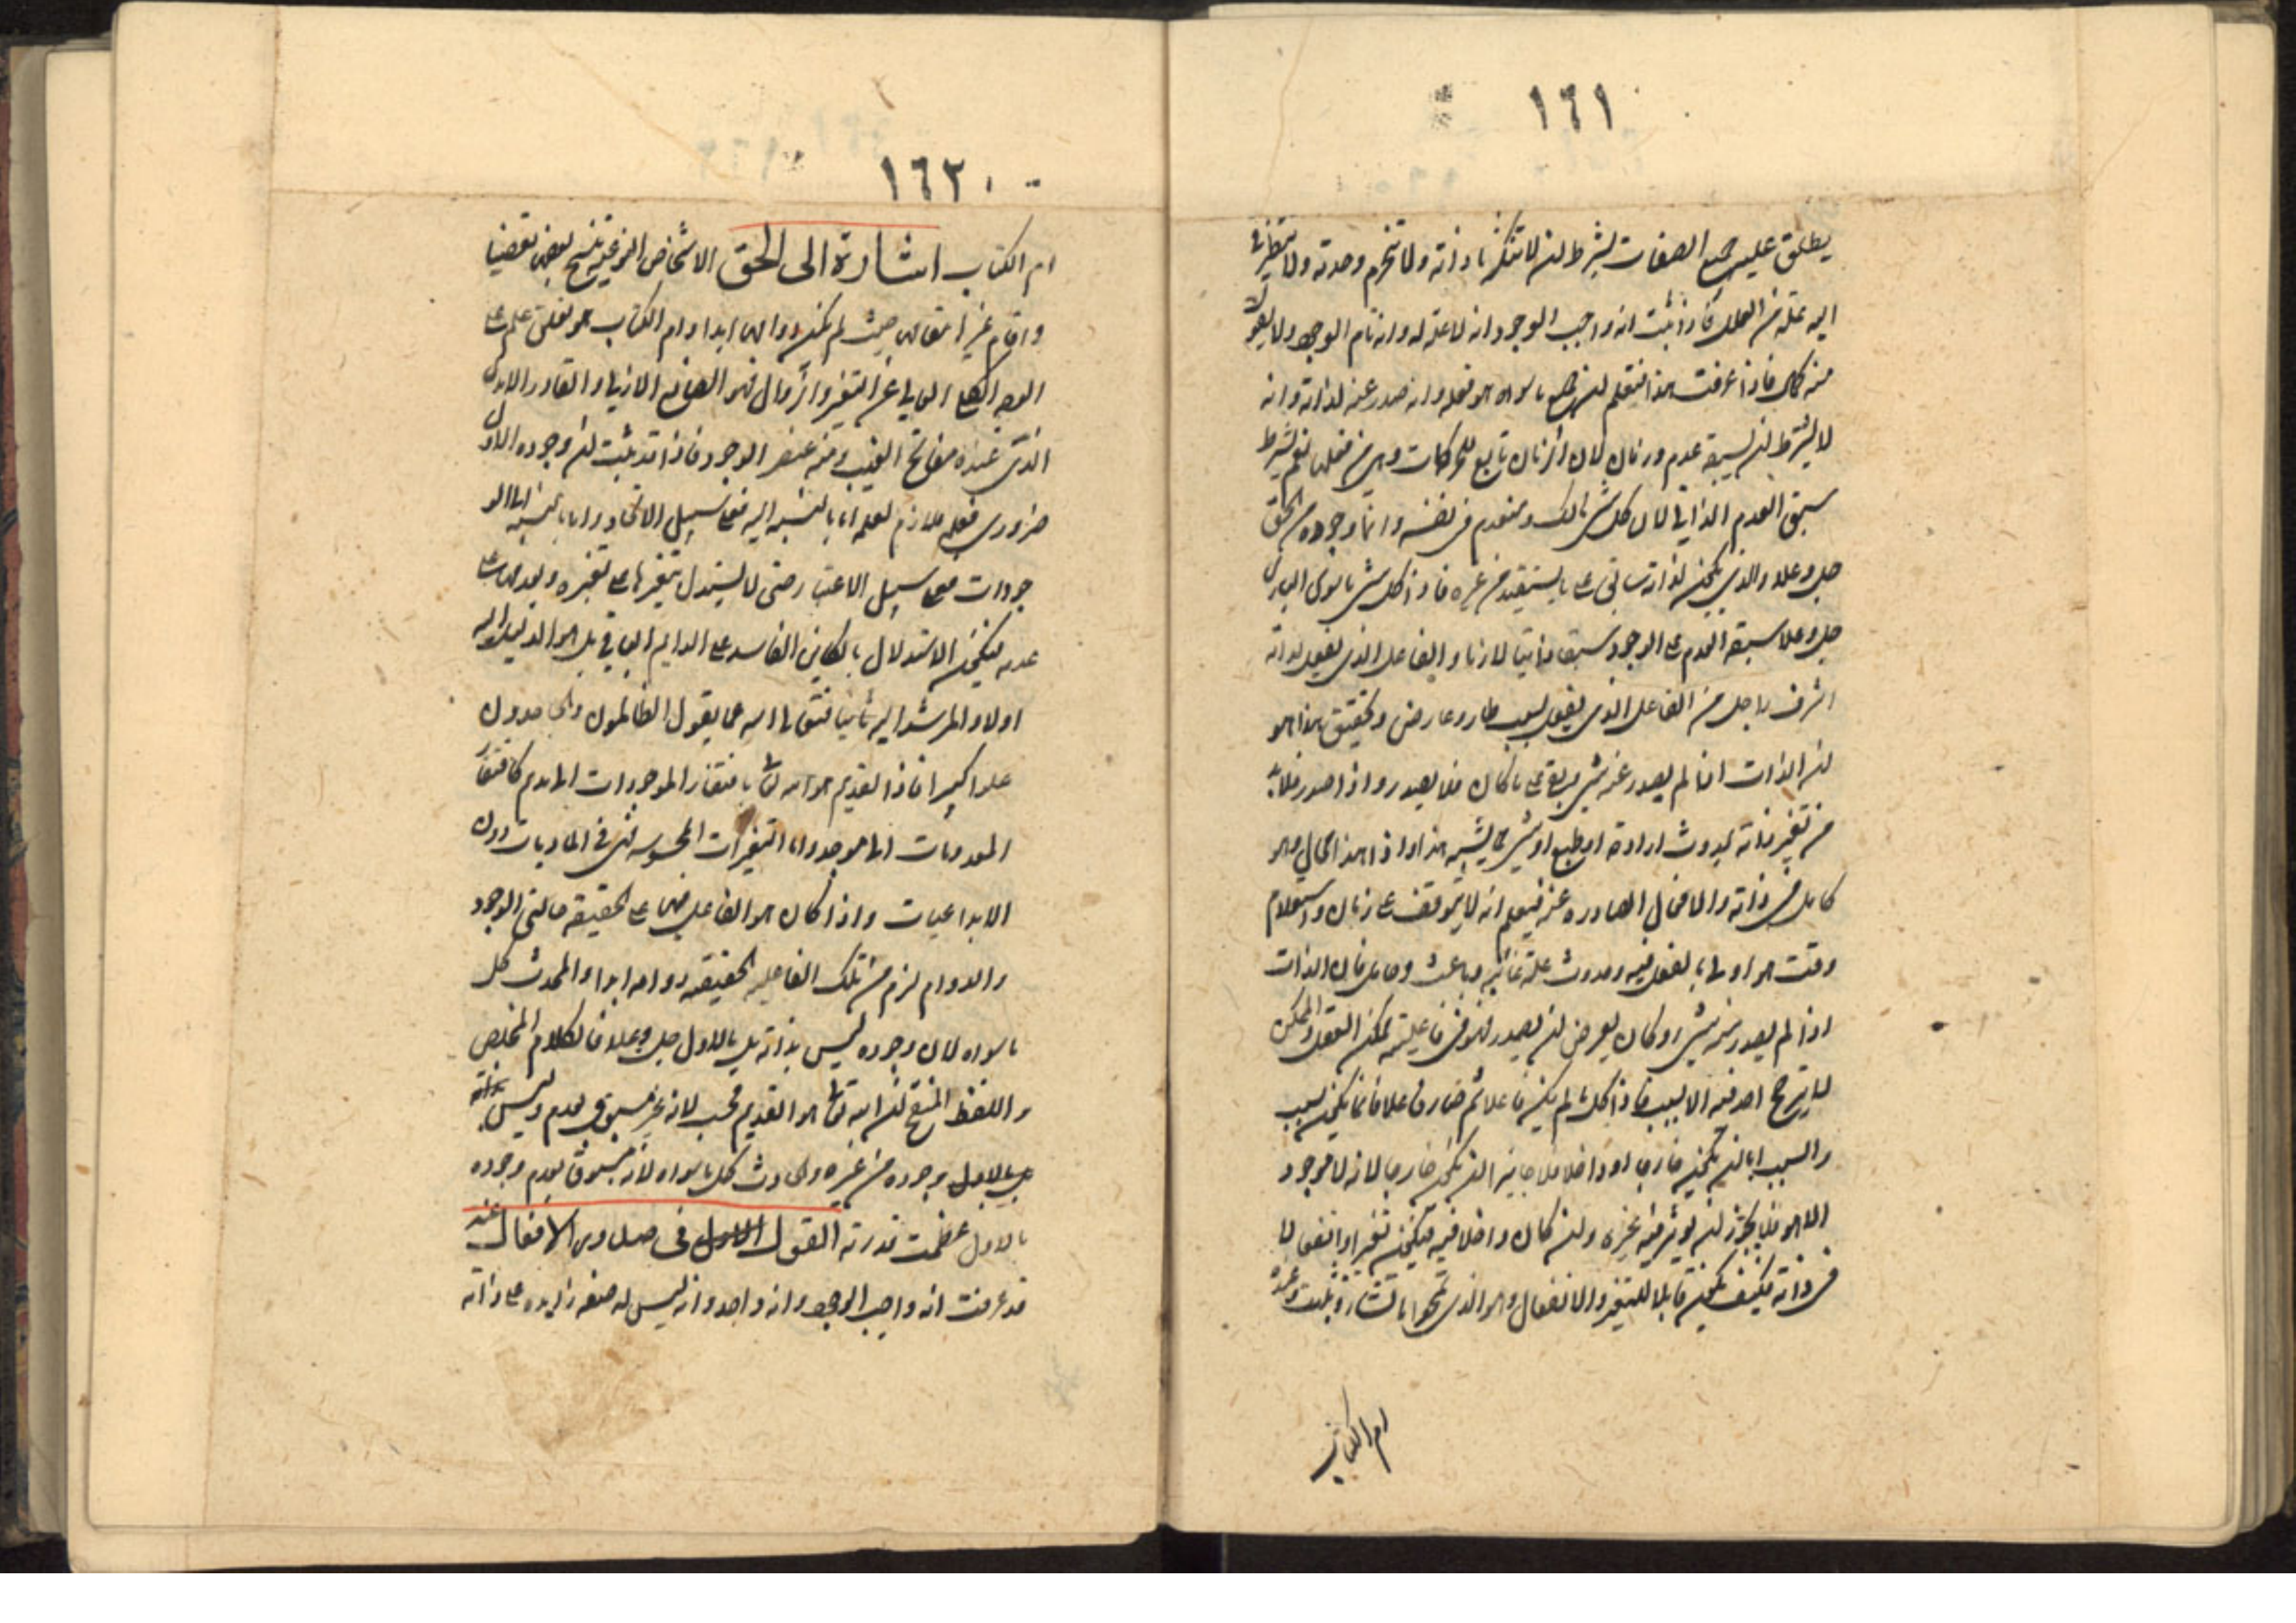 ١٦١
يطلق عليه جميع الصفات بشرط ان لا تتكثر بها ذاته ولا تنخرم وحدته ولا
اليه علة من العلل فاذا ثبت انه واجب الوجود انه لا علة له وانه تام الوجود ولا يعوزه
منه كمال فاذا عرفت هذا فتعلم ان جميع ما سواه هو فعله وانه صدر عنه لذاته وانه
لا يشترط ان يسبقه عدم وزمان لان الزمان تابع للحركات وهي من فعله نعم يشترط
سبق العدم الذاتي لان كل شي هالك ومنعدم في نفسه وانما وجوده من الحق
جل وعلا والذي يكون لذاته سابق على ما يستفيد من غيره فاذا كل شي ما سوى الباري
جل وعلا سبقه العدم على الوجود سبقا ذاتيا لا زمانا والفاعل الذي يفعل لذاته
اشرف واجل من الفاعل الذي يفعل بسبب طار وعارض وتحقيق هذا هو
ان الذات اذا لم يصدر عنه شي وبقي على ما كان فلا يصدر واذا صدر فلا بد
من تغير ذاته بحدوث ارادة او طبع او شي مما يشبه هذا واذا هذا محال وهو
كامل في ذاته والافعال الصادرة عنه فيعلم انه لا يتوقف على زمان واستعلام
وقت هو اولى بالفعل فيه وحدوث علة غائية وباعث وحامل فان الذات
اذا لم يصدر منه شي وكان يعرض ان يصدر فهو في فاعليته ممكن الفعل والممكن
لا يترجح احد فيه الا بسبب فاذا كل ما لم يكن فاعلا ثم صار فاعلا فانما يكون بسبب
والسبب اما ان يكون خارجا او داخلا فلا جايز ان يكون خارجا لانه لا موجود
الا هو فلا يجوز ان يوثر فيه غيره وان كان داخلا فيه فيكون تغيرا وانفعالا
في ذاته فكيف يكون قابلا للتغير والانفعال وهو الذي يمحوا ما يشاء ويثبت وعنده
ام الكتاب
١٦٢
ام الكتاب اشارة الى الحق الاشخاص النوعية ينسخ بعض بعضها
واقام غيرها مقامها حيث لم يكن دوامها ابدا وام الكتاب هو تعلق علمه على
الوجه الكلي العالي عن التغير والزوال فهو الصانع الازلي والقادر الابدي
الذي عنده مفاتح الغيب ومنه عنصر الوجود فاذا قد ثبت ان وجوده الاول
ضروري ففعله ملازم لعلمه اما بالنسبة اليه فعلى سبيل الاتحاد واما بالنسبة الى المو
جودات فعلى سبيل الاعتبار حتى لا يستدل بتغيرها على تغيره وبعدمها على
عدمه فيكون الاستدلال بالكاين الفاسد على الدايم الباقي بل هو الدليل اليه
اولا والمرشد اليه ثانيا فتعالى الله عما يقول الظالمون والجاحدون
علوا كبيرا فاذا القديم هو الله تعالى بافتقار الموجودات اليه كافتقار
المعدومات الى موجد واما التغيرات المحسوسة فهي في الماديات دون
الابداعيات واذا كان هو الفاعل فيها على الحقيقة حالتي الوجود
والدوام لزم من تلك الفاعلية الحقيقه دوامه ابدا والمحدث كل
ما سواه لان وجوده ليس بذاته بل بالاول جل وعلا فالكلام المخلص
واللفظ المنقح ان الله تعالى هو القديم فحسب لانه غير مسبوق بعدم وليس بذاته
بل بالاول وجوده من غيره والحادث كل ما سواه لانه مسبوق بعدم وجوده
بالاول عظمت قدرته القول الاول في صدور الافعال عنه
قد عرفت انه واجب الوجود وانه واحد وانه ليس له صفه زايده على ذاته